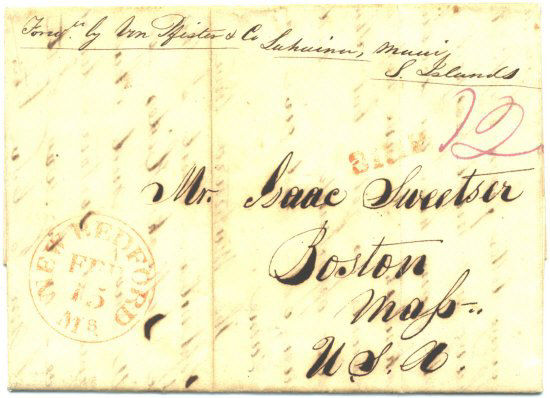 Forwd. by Von Pfister & Co Lahaina, Maui,
S. Islands
SHIP
12
Mr. Isaac Sweetser
Boston
Mass.
U.S.A.
NEW BEDFORD
FEB
15
MS